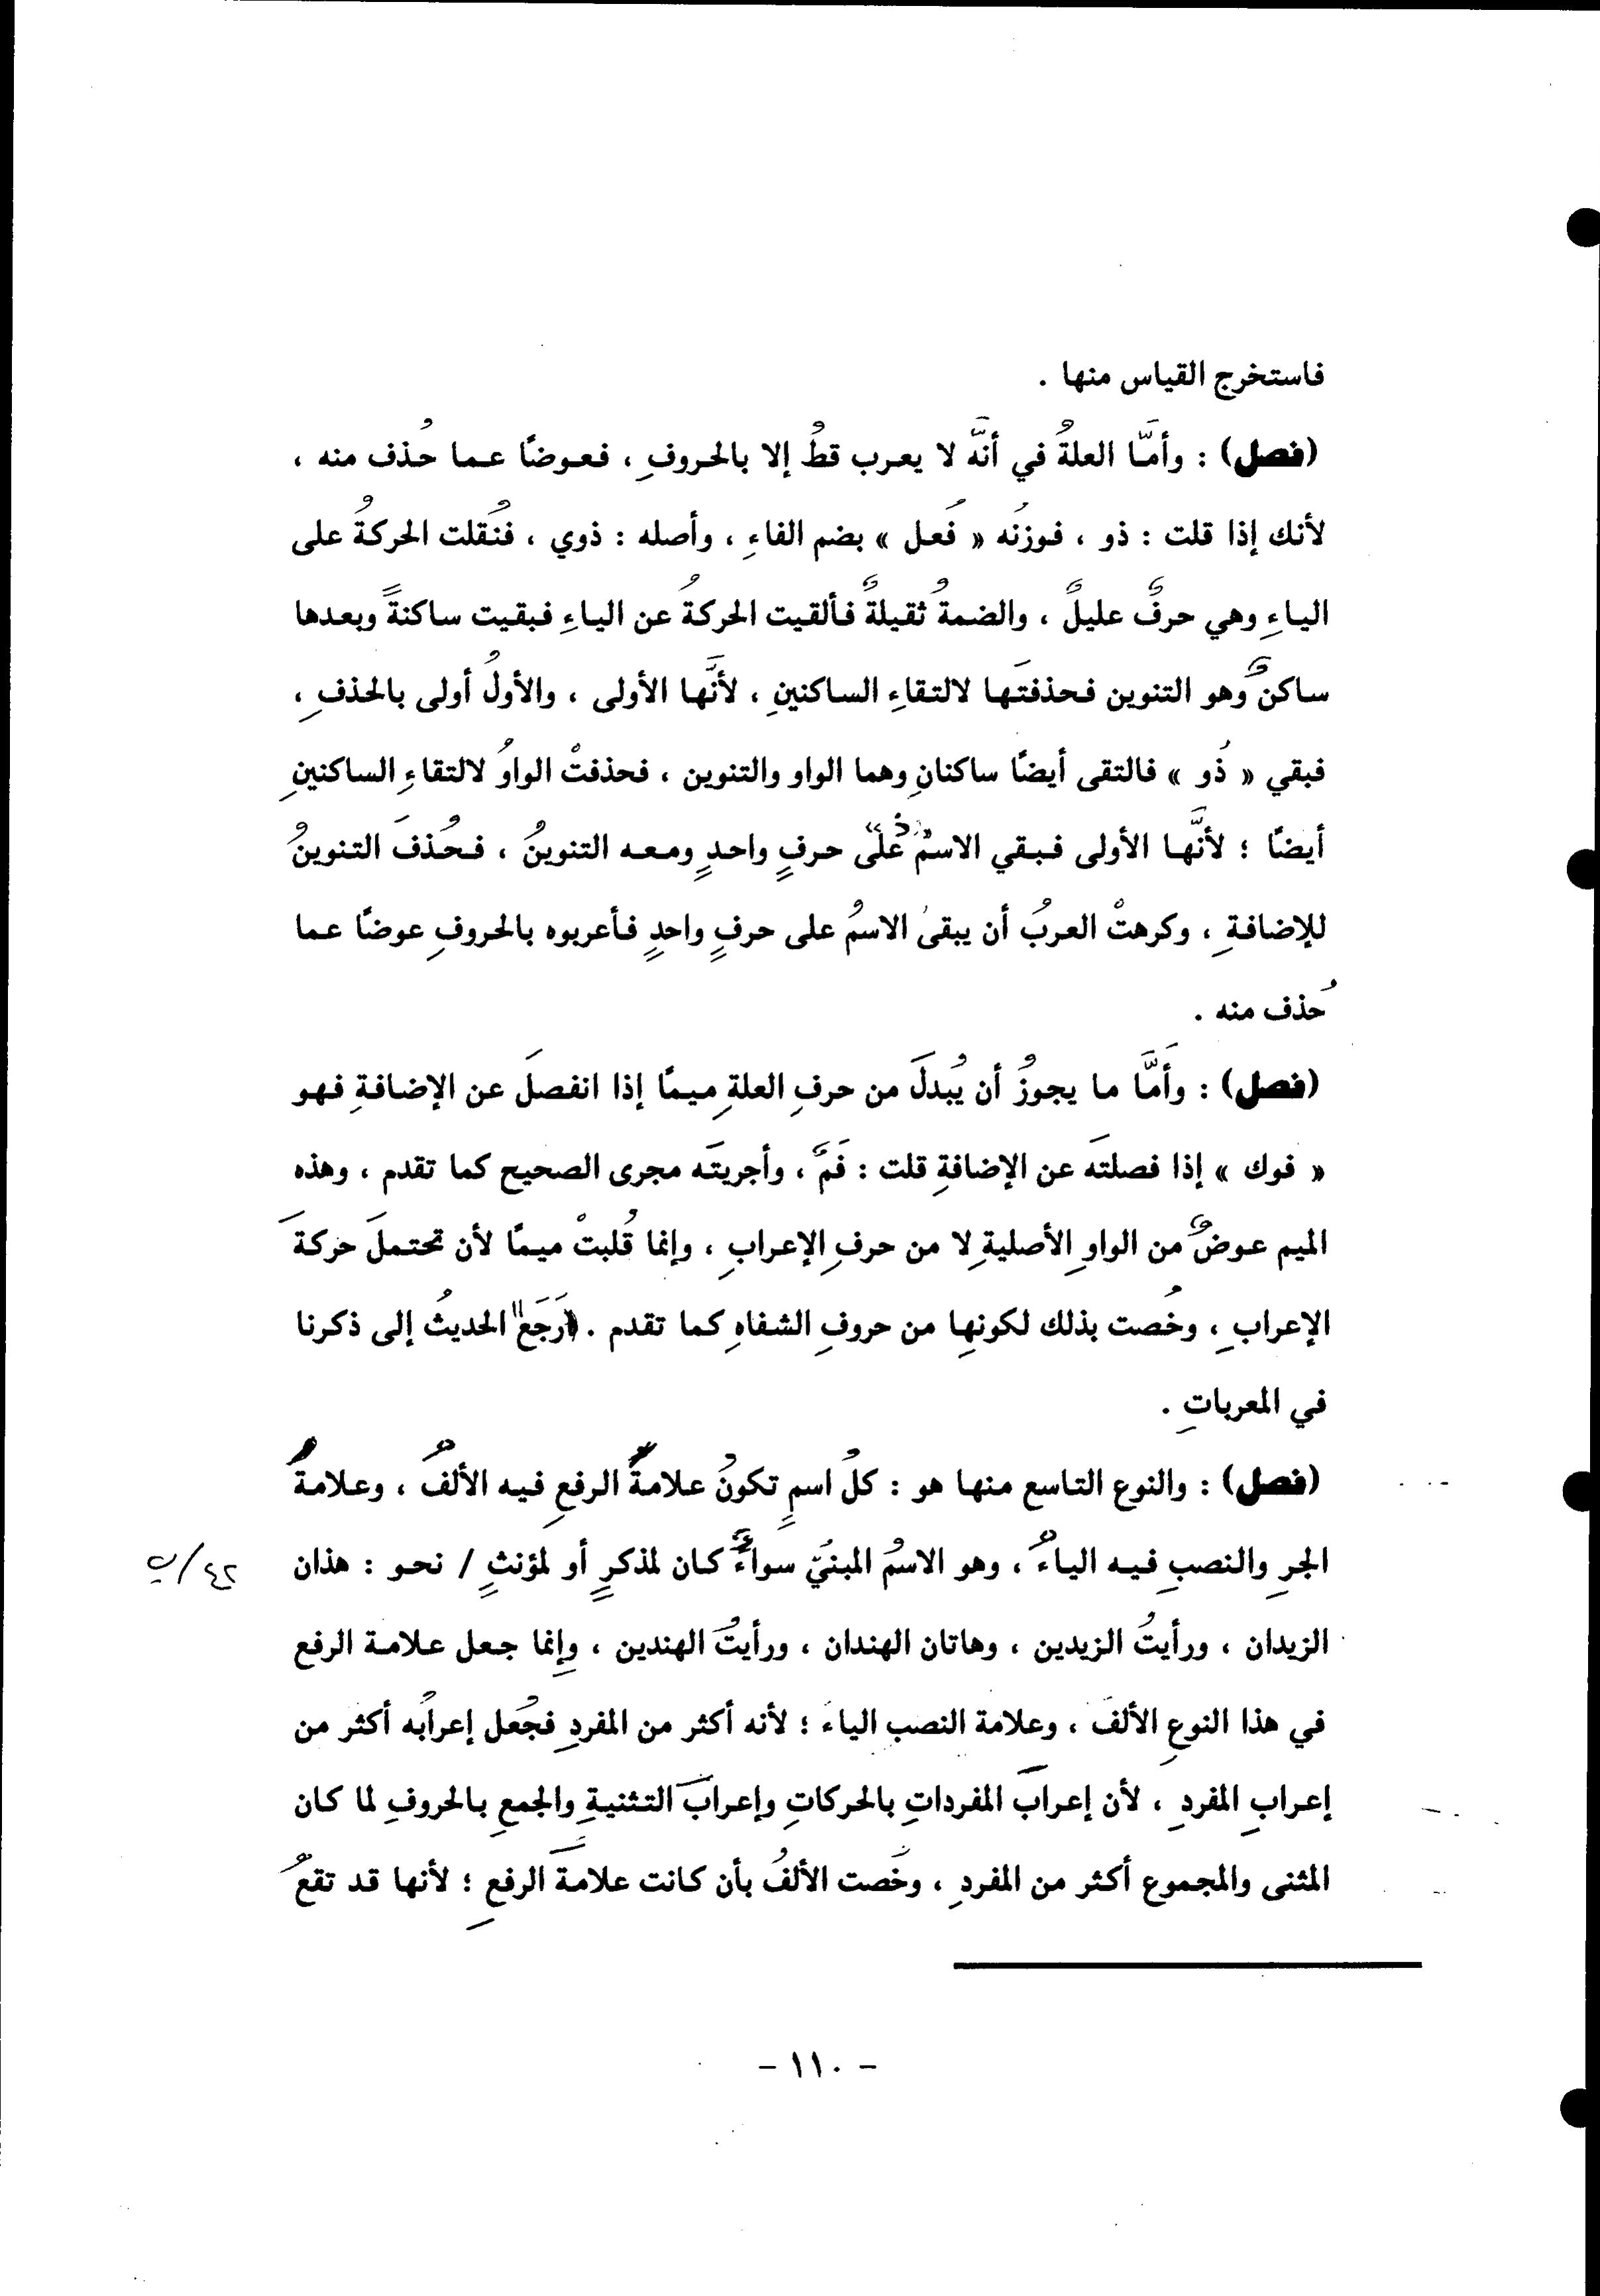 فاستخرج القياس منها .
(فصل) : وأمَّا العلةُ في أنَّه لا يعرب قطُ إلا بالحروفِ ، فعوضًا عما حُذف منه ،
لأنك إذا قلت : ذو ، فوزنُه « فَعل » بضم الفاءِ ، وأصله : ذوي ، فنُقلت الحركةُ على
الياءِ وهي حرفٌ عليلٌ ، والضمةُ ثقيلةٌ فألقيت الحركةُ عن الياءِ فبقيت ساكنةً وبعدها
ساكنٌ وهو التنوين فحذفتَها لالتقاءِ الساكنينِ ، لأنَّها الأولى ، والأولُ أولى بالحذفِ ،
فبقي « ذُو » فالتقى أيضًا ساكنانِ وهما الواو والتنوين ، فحذفتْ الواوُ لالتقاءِ الساكنينِ
أيضًا ؛ لأنَّها الأولى فبقي الاسمُ على حرفٍ واحدٍ ومعه التنوينُ ، فحُذفَ التنوينُ
للإضافةِ ، وكرهتْ العربُ أن يبقىٰ الاسمُ على حرفٍ واحدٍ فأعربوه بالحروفِ عوضًا عما
حُذف منه .
(فصل) : وأمَّا ما يجوزُ أن يُبدلَ من حرفِ العلةِ ميمًا إذا انفصلَ عن الإضافةِ فهو
« فوك » إذا فصلتَه عن الإضافةِ قلت : فَمٌ ، وأجريتَه مجرى الصحيح كما تقدم ، وهذه
الميم عوضٌ من الواوِ الأصليةِ لا من حرفِ الإعرابِ ، وإنما قُلبتْ ميمًا لأن تحتملَ حركةَ
الإعرابِ ، وخُصت بذلك لكونِها من حروفِ الشفاهِ كما تقدم . رَجَعَ الحديثُ إلى ذكرنا
في المعرباتِ .
(فصل) : والنوع التاسع منها هو : كلُ اسمٍ تكونُ علامةُ الرفعِ فيه الألفُ ، وعلامةُ
الجرِ والنصبِ فيه الياءُ ، وهو الاسمُ المبنيّ سواءٌ كان لمذكرٍ أو لمؤنثٍ / نحو : هذان
٤٢/ب
الزيدان ، ورأيتُ الزيدين ، وهاتان الهندان ، ورأيتُ الهندين ، وإنما جعل علامة الرفع
في هذا النوعِ الألفَ ، وعلامة النصب الياءَ ؛ لأنه أكثر من المفردِ فجُعل إعرابُه أكثر من
إعرابِ المفردِ ، لأن إعرابَ المفرداتِ بالحركاتِ وإعرابَ التثنيةِ والجمعِ بالحروفِ لما كان
المثنى والمجموع أكثر من المفردِ ، وخُصت الألفُ بأن كانت علامةَ الرفعِ ؛ لأنها قد تقعُ
- ١١٠ -